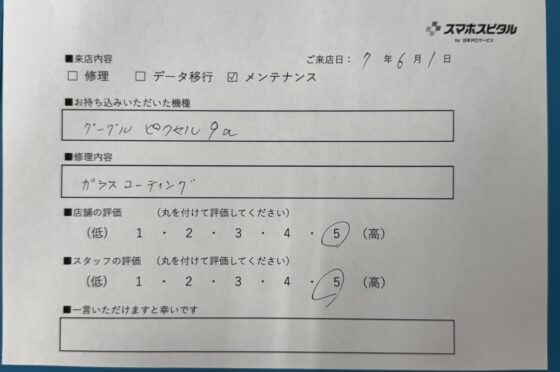 スマホスピタル
by 日本PCサービス
■来店内容 ご来店日： 7 年 6 月 1 日
☐ 修理 ☐ データ移行 ☑ メンテナンス
■お持ち込みいただいた機種
グーグル ピクセル 9a
■修理内容
ガラスコーティング
■店舗の評価 （丸を付けて評価してください）
（低） 1 ・ 2 ・ 3 ・ 4 ・ 5 （高）
■スタッフの評価 （丸を付けて評価してください）
（低） 1 ・ 2 ・ 3 ・ 4 ・ 5 （高）
■一言いただけますと幸いです